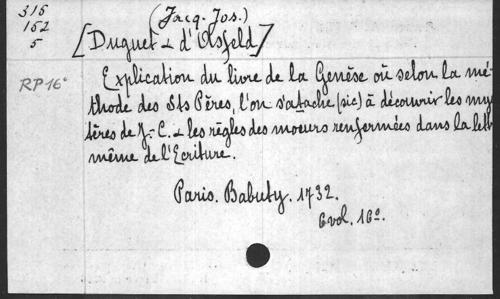 316
152
5
(Jacq. Jos.)
[Duguet & d'Asfeld]
RP 16°
Explication du livre de la Genèse où selon la mé-
thode des Sts Pères, l'on s'atache (sic) à découvrir les mys
tères de J.-C. & les règles des moeurs renfermées dans la lett
même de l'Ecriture.
Paris. Babuty. 1732.
6 vol. 16°.